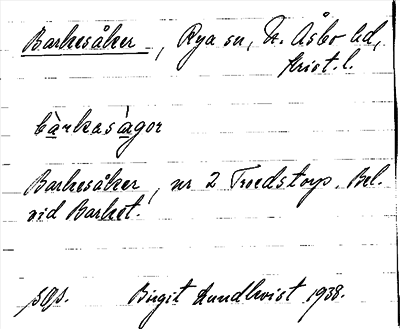 Barkesåker, Rya sn, N. Åsbo hd,
Krist. l.
bàrkasàgor
Barkesåker, nr 2 Troedstorp. Bel.
vid Barket.
Birgit Lundkvist 1938.